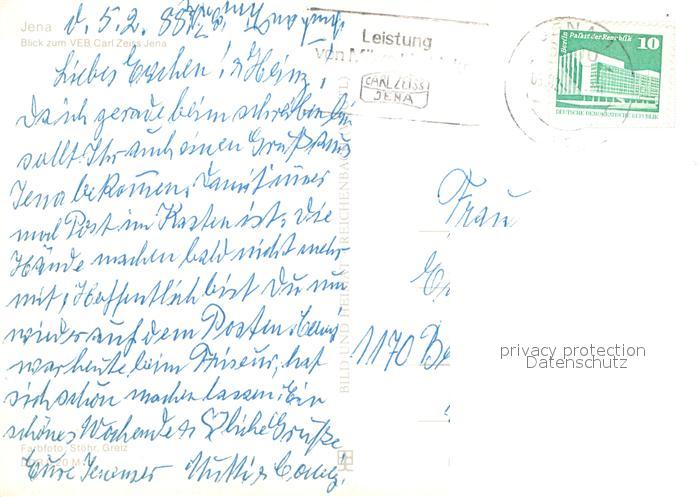 Jena
Blick zum VEB Carl Zeiss Jena
d. 5.2.88
Liebes Evchen! & Heinz!
Da ich gerade beim schreiben bin
sollt Ihr auch einen Gruß aus
Jena bekommen, damit mal
Post im Kasten ist, die
Hände machen bald nicht mehr
mit, Hoffentlich bist Du nun
wieder auf dem Posten,
war heute beim Friseur, hat
sich schön machen lassen. Ein
schönes Wochenende & Grüße
Eure Jenenser Mutti &
Farbfoto: Stöhr, Greiz
BILD UND HEIMAT REICHENBACH
Leistung
CARL ZEISS
JENA
JENA
Berlin Palast der Republik
10
DEUTSCHE DEMOKRATISCHE REPUBLIK
Frau
1170 Be
privacy protection
Datenschutz